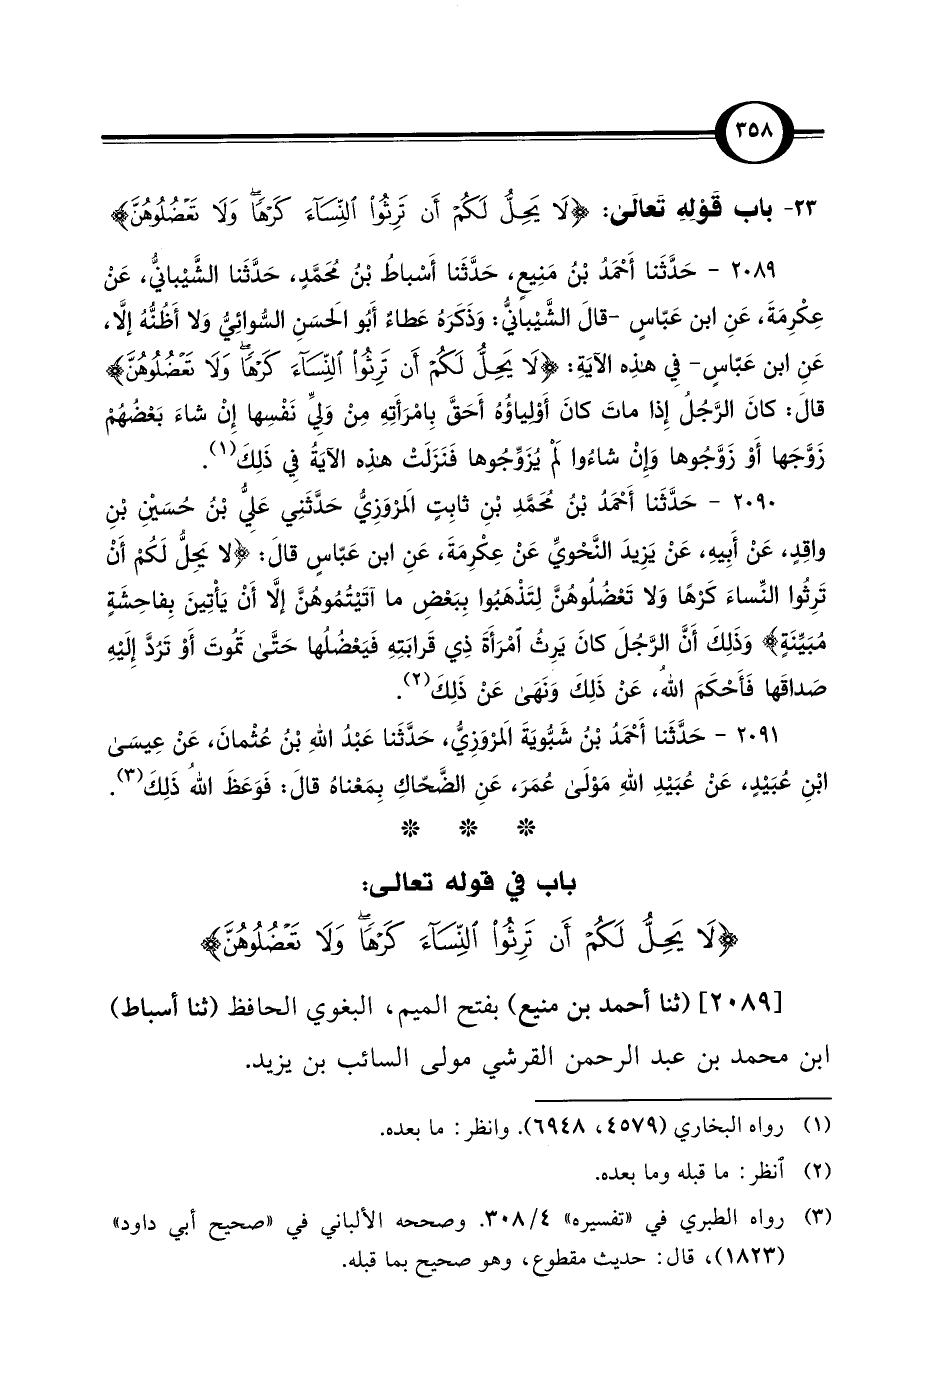 ٣٥٨
٢٣- باب قَوْلِهِ تَعالَىٰ: ﴿لَا يَحِلُّ لَكُمْ أَن تَرِثُوا۟ ٱلنِّسَآءَ كَرْهًاۖ وَلَا تَعْضُلُوهُنَّ﴾
٢٠٨٩ - حَدَّثَنا أَحْمَدُ بْنُ مَنِيعٍ، حَدَّثَنا أَسْباطُ بْنُ مُحَمَّدٍ، حَدَّثَنا الشَّيْبانيُّ، عَنْ
عِكْرِمَةَ، عَنِ ابن عَبّاسٍ -قالَ الشَّيْبانيُّ: وَذَكَرَهُ عَطاءٌ أَبُو الحَسَنِ السُّوائِيُّ وَلا أَظُنُّهُ إلَّا،
عَنِ ابن عَبّاسٍ- في هذِه الآيَةِ: ﴿لَا يَحِلُّ لَكُمْ أَن تَرِثُوا۟ ٱلنِّسَآءَ كَرْهًاۖ وَلَا تَعْضُلُوهُنَّ﴾
قالَ: كانَ الرَّجُلُ إذا ماتَ كانَ أَوْلِياؤُهُ أَحَقَّ بِامْرَأَتِهِ مِنْ وَلِيِّ نَفْسِها إنْ شاءَ بَعْضُهُمْ
زَوَّجَها أَوْ زَوَّجُوها وَإنْ شاءُوا لَمْ يُزَوِّجُوها فَنَزَلَتْ هذِه الآيَةُ في ذَلِكَ(١).
٢٠٩٠ - حَدَّثَنا أَحْمَدُ بْنُ مُحَمَّدِ بْنِ ثابِتٍ المَرْوَزِيُّ حَدَّثَنِي عَلِيُّ بْنُ حُسَيْنِ بْنِ
واقِدٍ، عَنْ أَبِيهِ، عَنْ يَزِيدَ النَّحْوِيِّ عَنْ عِكْرِمَةَ، عَنِ ابن عَبّاسٍ قالَ: ﴿لا يَحِلُّ لَكُمْ أَنْ
تَرِثُوا النِّساءَ كَرْهًا وَلا تَعْضُلُوهُنَّ لِتَذْهَبُوا بِبَعْضِ ما آتَيْتُمُوهُنَّ إلَّا أَنْ يَأْتِينَ بِفاحِشَةٍ
مُبَيِّنَةٍ﴾ وَذَلِكَ أَنَّ الرَّجُلَ كانَ يَرِثُ ٱمْرَأَةَ ذِي قَرابَتِهِ فَيَعْضُلُها حَتَّىٰ تَمُوتَ أَوْ تَرُدَّ إلَيْهِ
صَداقَها فَأَحْكَمَ اللهُ، عَنْ ذَلِكَ وَنَهَىٰ عَنْ ذَلِكَ(٢).
٢٠٩١ - حَدَّثَنا أَحْمَدُ بْنُ شَبُّويَةَ المَرْوَزِيُّ، حَدَّثَنا عَبْدُ اللهِ بْنُ عُثْمانَ، عَنْ عِيسَىٰ
ابْنِ عُبَيْدٍ، عَنْ عُبَيْدِ اللهِ مَوْلَىٰ عُمَرَ، عَنِ الضَّحّاكِ بِمَعْناهُ قالَ: فَوَعَظَ اللهُ ذَلِكَ(٣).
* * *
باب في قوله تعالى:
﴿لَا يَحِلُّ لَكُمْ أَن تَرِثُوا۟ ٱلنِّسَآءَ كَرْهًاۖ وَلَا تَعْضُلُوهُنَّ﴾
[٢٠٨٩] (ثنا أحمد بن منيع) بفتح الميم، البغوي الحافظ (ثنا أسباط)
ابن محمد بن عبد الرحمن القرشي مولى السائب بن يزيد.
(١) رواه البخاري (٤٥٧٩، ٦٩٤٨). وانظر: ما بعده.
(٢) ٱنظر: ما قبله وما بعده.
(٣) رواه الطبري في «تفسيره» ٣٠٨/٤. وصححه الألباني في «صحيح أبي داود»
(١٨٢٣)، قال: حديث مقطوع، وهو صحيح بما قبله.